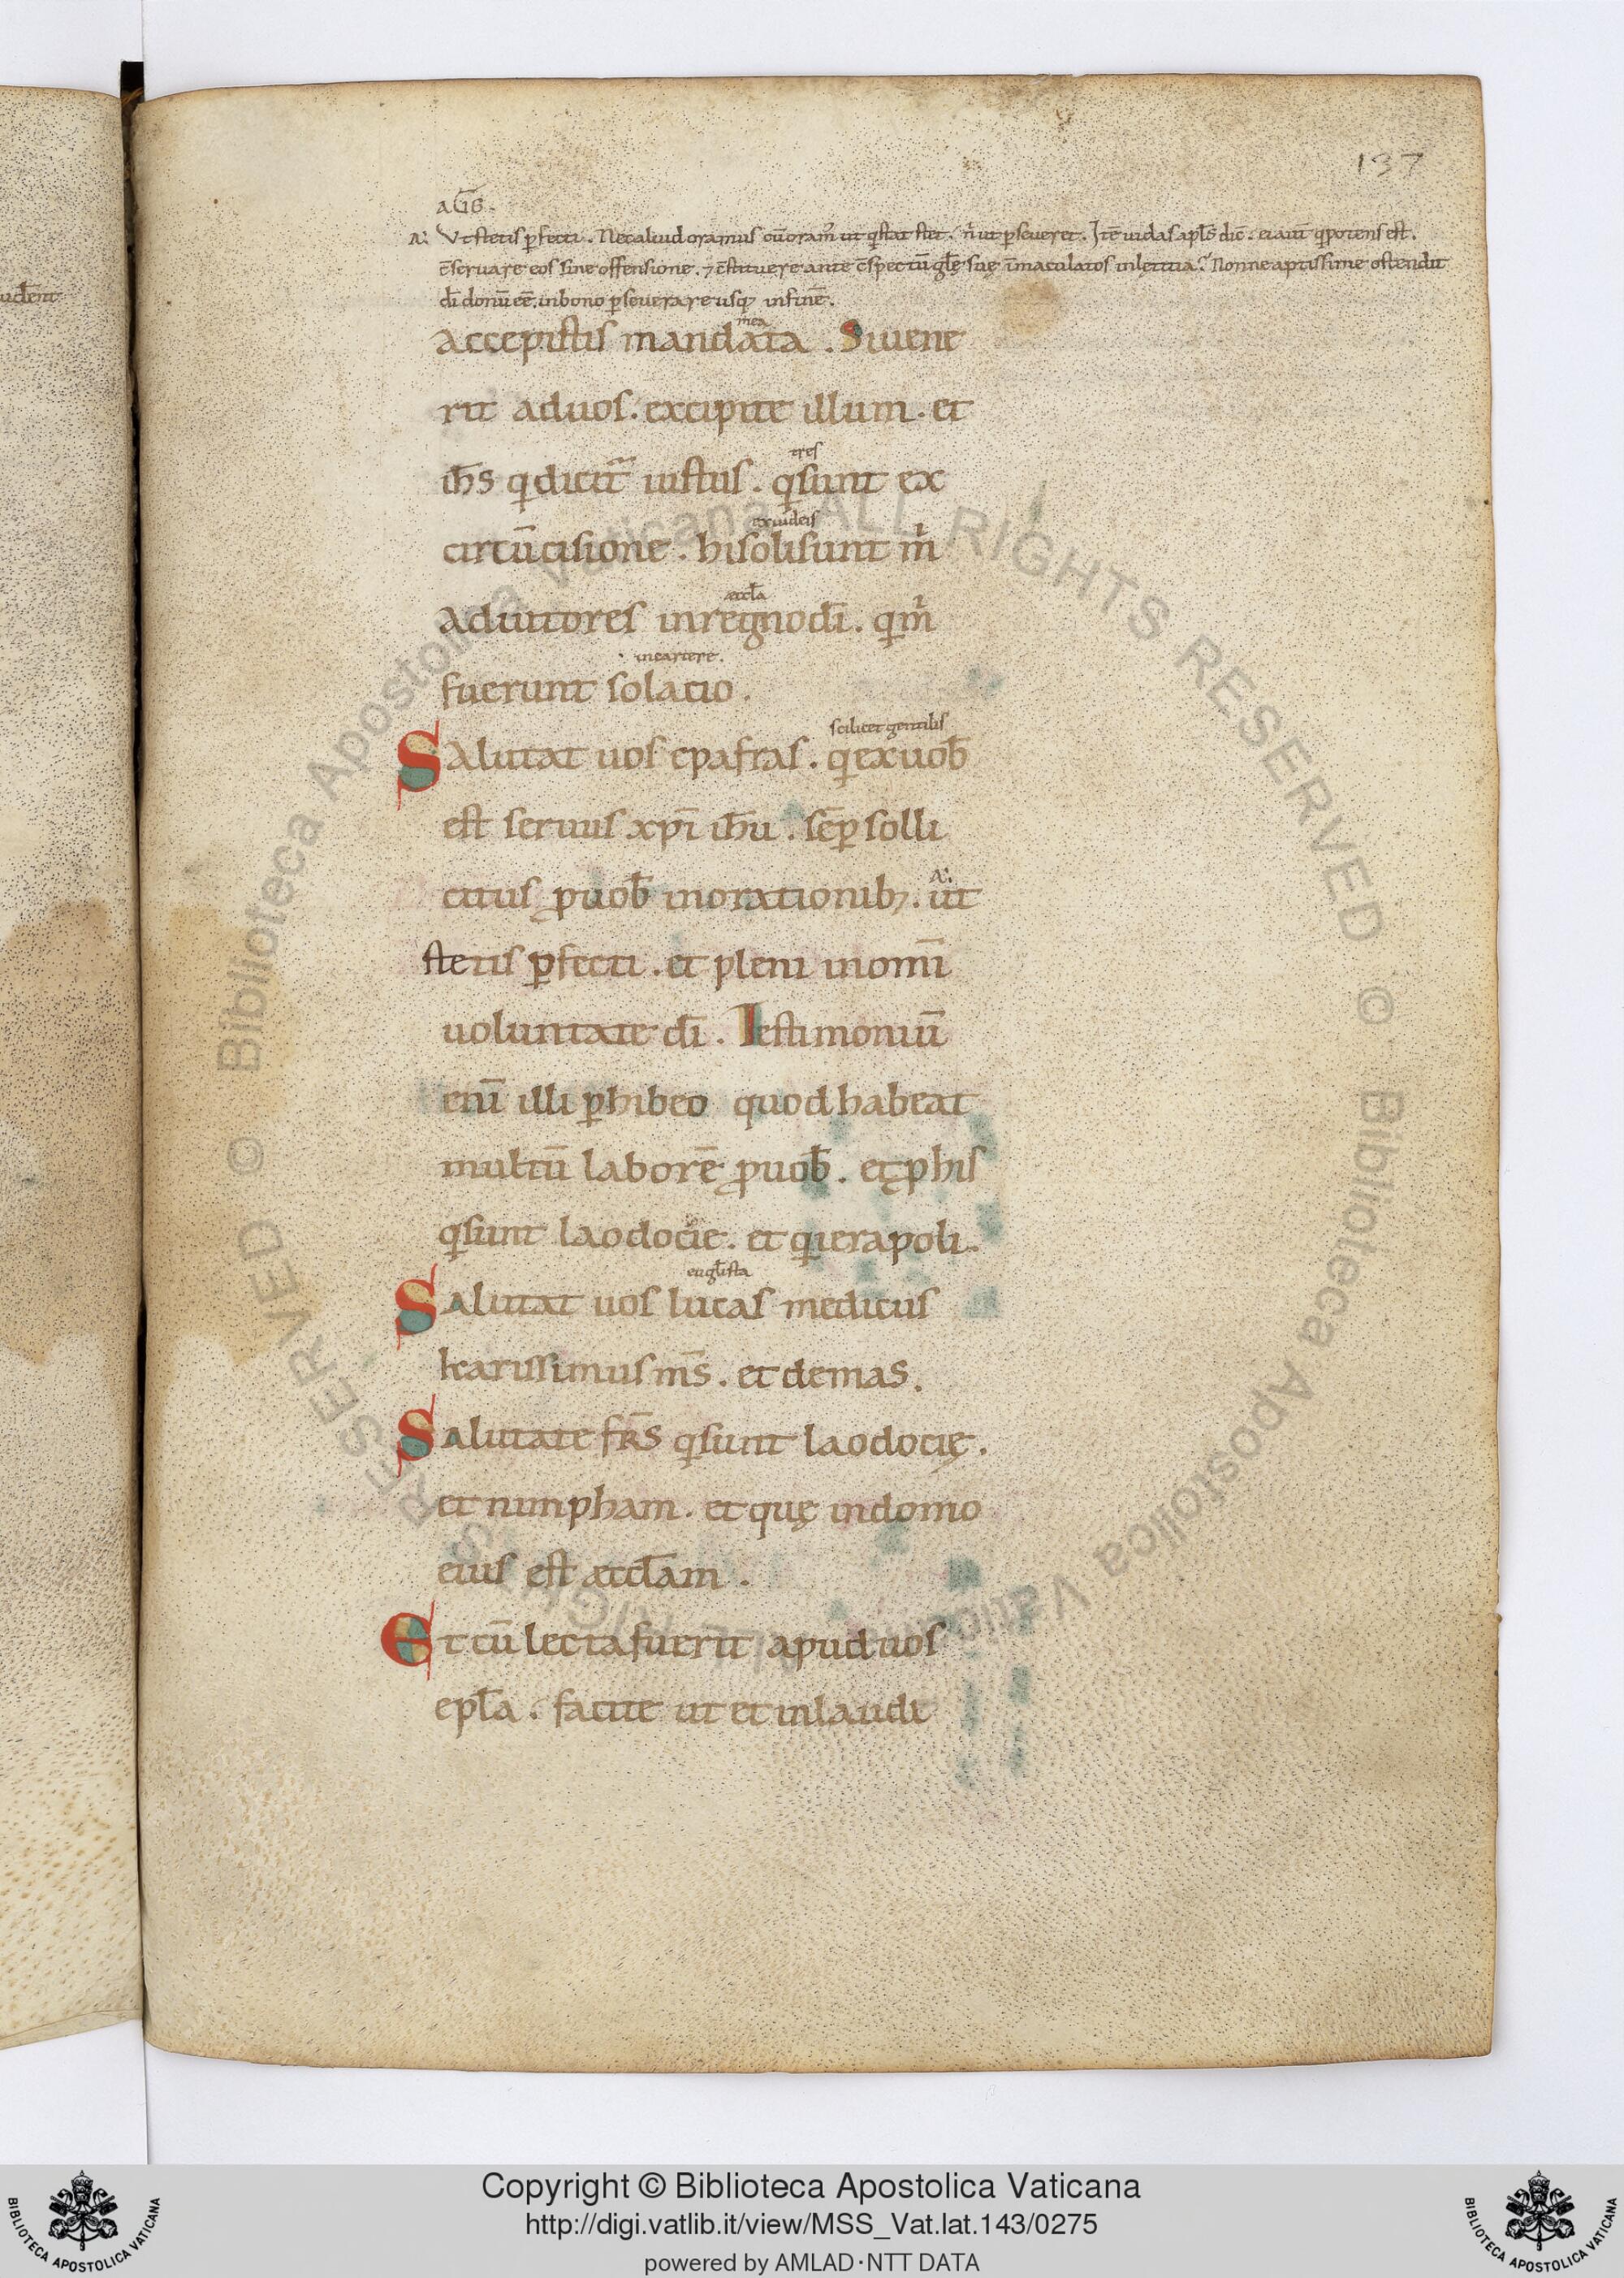 137
AGB.
A: Vt stetis pfecti. Nec aliud oramus cū oram̃ ut q̇ stat stet. n̄ ut pseueret. Itē iudas apl̄s diē. ei aut̄ q potens est.
c̄seruare eos sine offensione. ⁊ c̄stituere ante c̄spectū gl̄ę suę īmaculatos in lętitia? Nonne aptissime ostendit
dī donū eē. in bono pseuerare usq; in finē.
udent
mea
accepistis mandata. Si uene
rit ad uos. excipite illum. et
tres
ih̄s qui dicit̃ iustus. q̇ sunt ex
ex iudeis
circūcisione. hi soli sunt m̊
aeccl̄a
adiutores in regno dī. q̇ m̊
in carcere.
fuerunt solacio.
scilicet gentilis
Salutat uos epafras. q̇ ex uob̄
est seruus xp̄i ih̄u. sēp solli
A:
citus p uob̄ in orationib;. ut
stetis pfecti. et pleni in om̄i
uoluntate dī. Testimoniū
enī illi phibeo quod habeat
multū laborē p uob̄. et p his
q̇ sunt laodocie. et q̇ ierapoli.
eugl̄ista
Salutat uos lucas medicus
karissimus m̄s. et demas.
Salutate fr̄s q̇ sunt laodocię.
et nimpham. et quę in domo
eius est aeccl̄am.
Et cū lecta fuerit apud uos
epl̄a. facite ut et in laudi
Copyright © Biblioteca Apostolica Vaticana
http://digi.vatlib.it/view/MSS_Vat.lat.143/0275
powered by AMLAD·NTT DATA
BIBLIOTECA APOSTOLICA VATICANA
BIBLIOTECA APOSTOLICA VATICANA
Biblioteca Apostolica Vaticana ALL RIGHTS RESERVED ©
Biblioteca Apostolica Vaticana ALL RIGHTS RESERVED ©